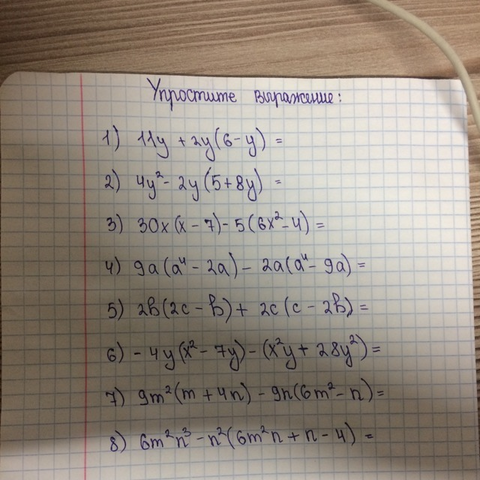 Упростите выражение:
1) 11y + 2y(6 - y) =
2) 4y² - 2y(5 + 8y) =
3) 30x(x - 7) - 5(6x² - 4) =
4) 9a(a⁴ - 2a) - 2a(a⁴ - 9a) =
5) 2b(2c - b) + 2c(c - 2b) =
6) - 4y(x² - 7y) - (x²y + 28y²) =
7) 9m²(m + 4n) - 9n(6m² - n) =
8) 6m²n³ - n²(6m²n + n - 4) =